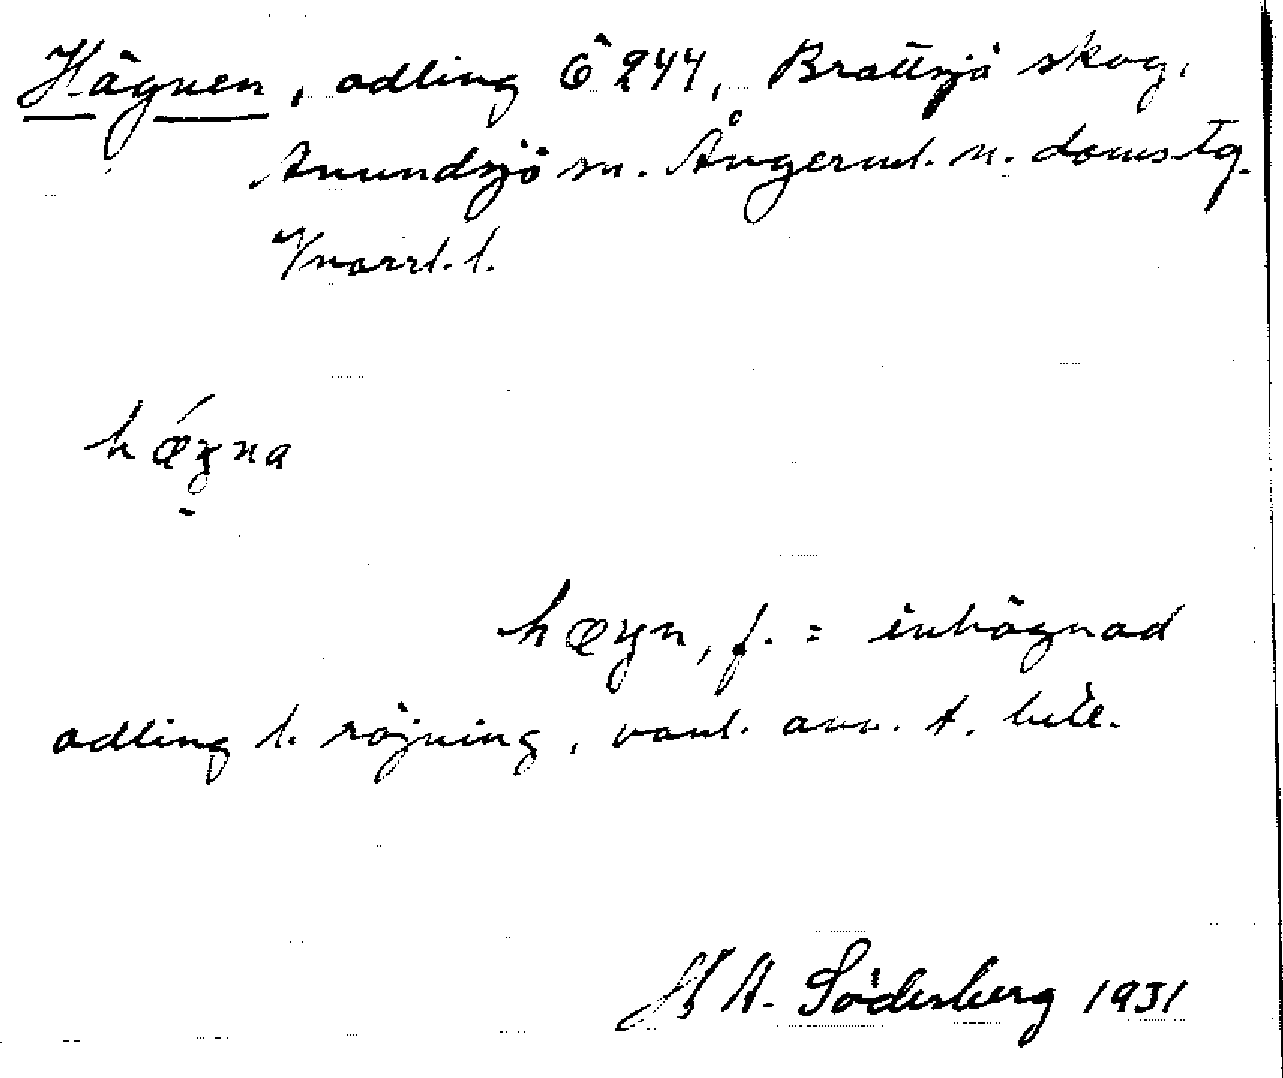 Hägnen, odling Ö 244, Brattsjö skog,
Anundsjö sn. Ångerml. n. doms.tg.
Vnorrl. l.
hǽgna
hægn, f. = inhägnad
odling l. röjning, vanl. anv. t. bete.
H A. Söderberg 1931